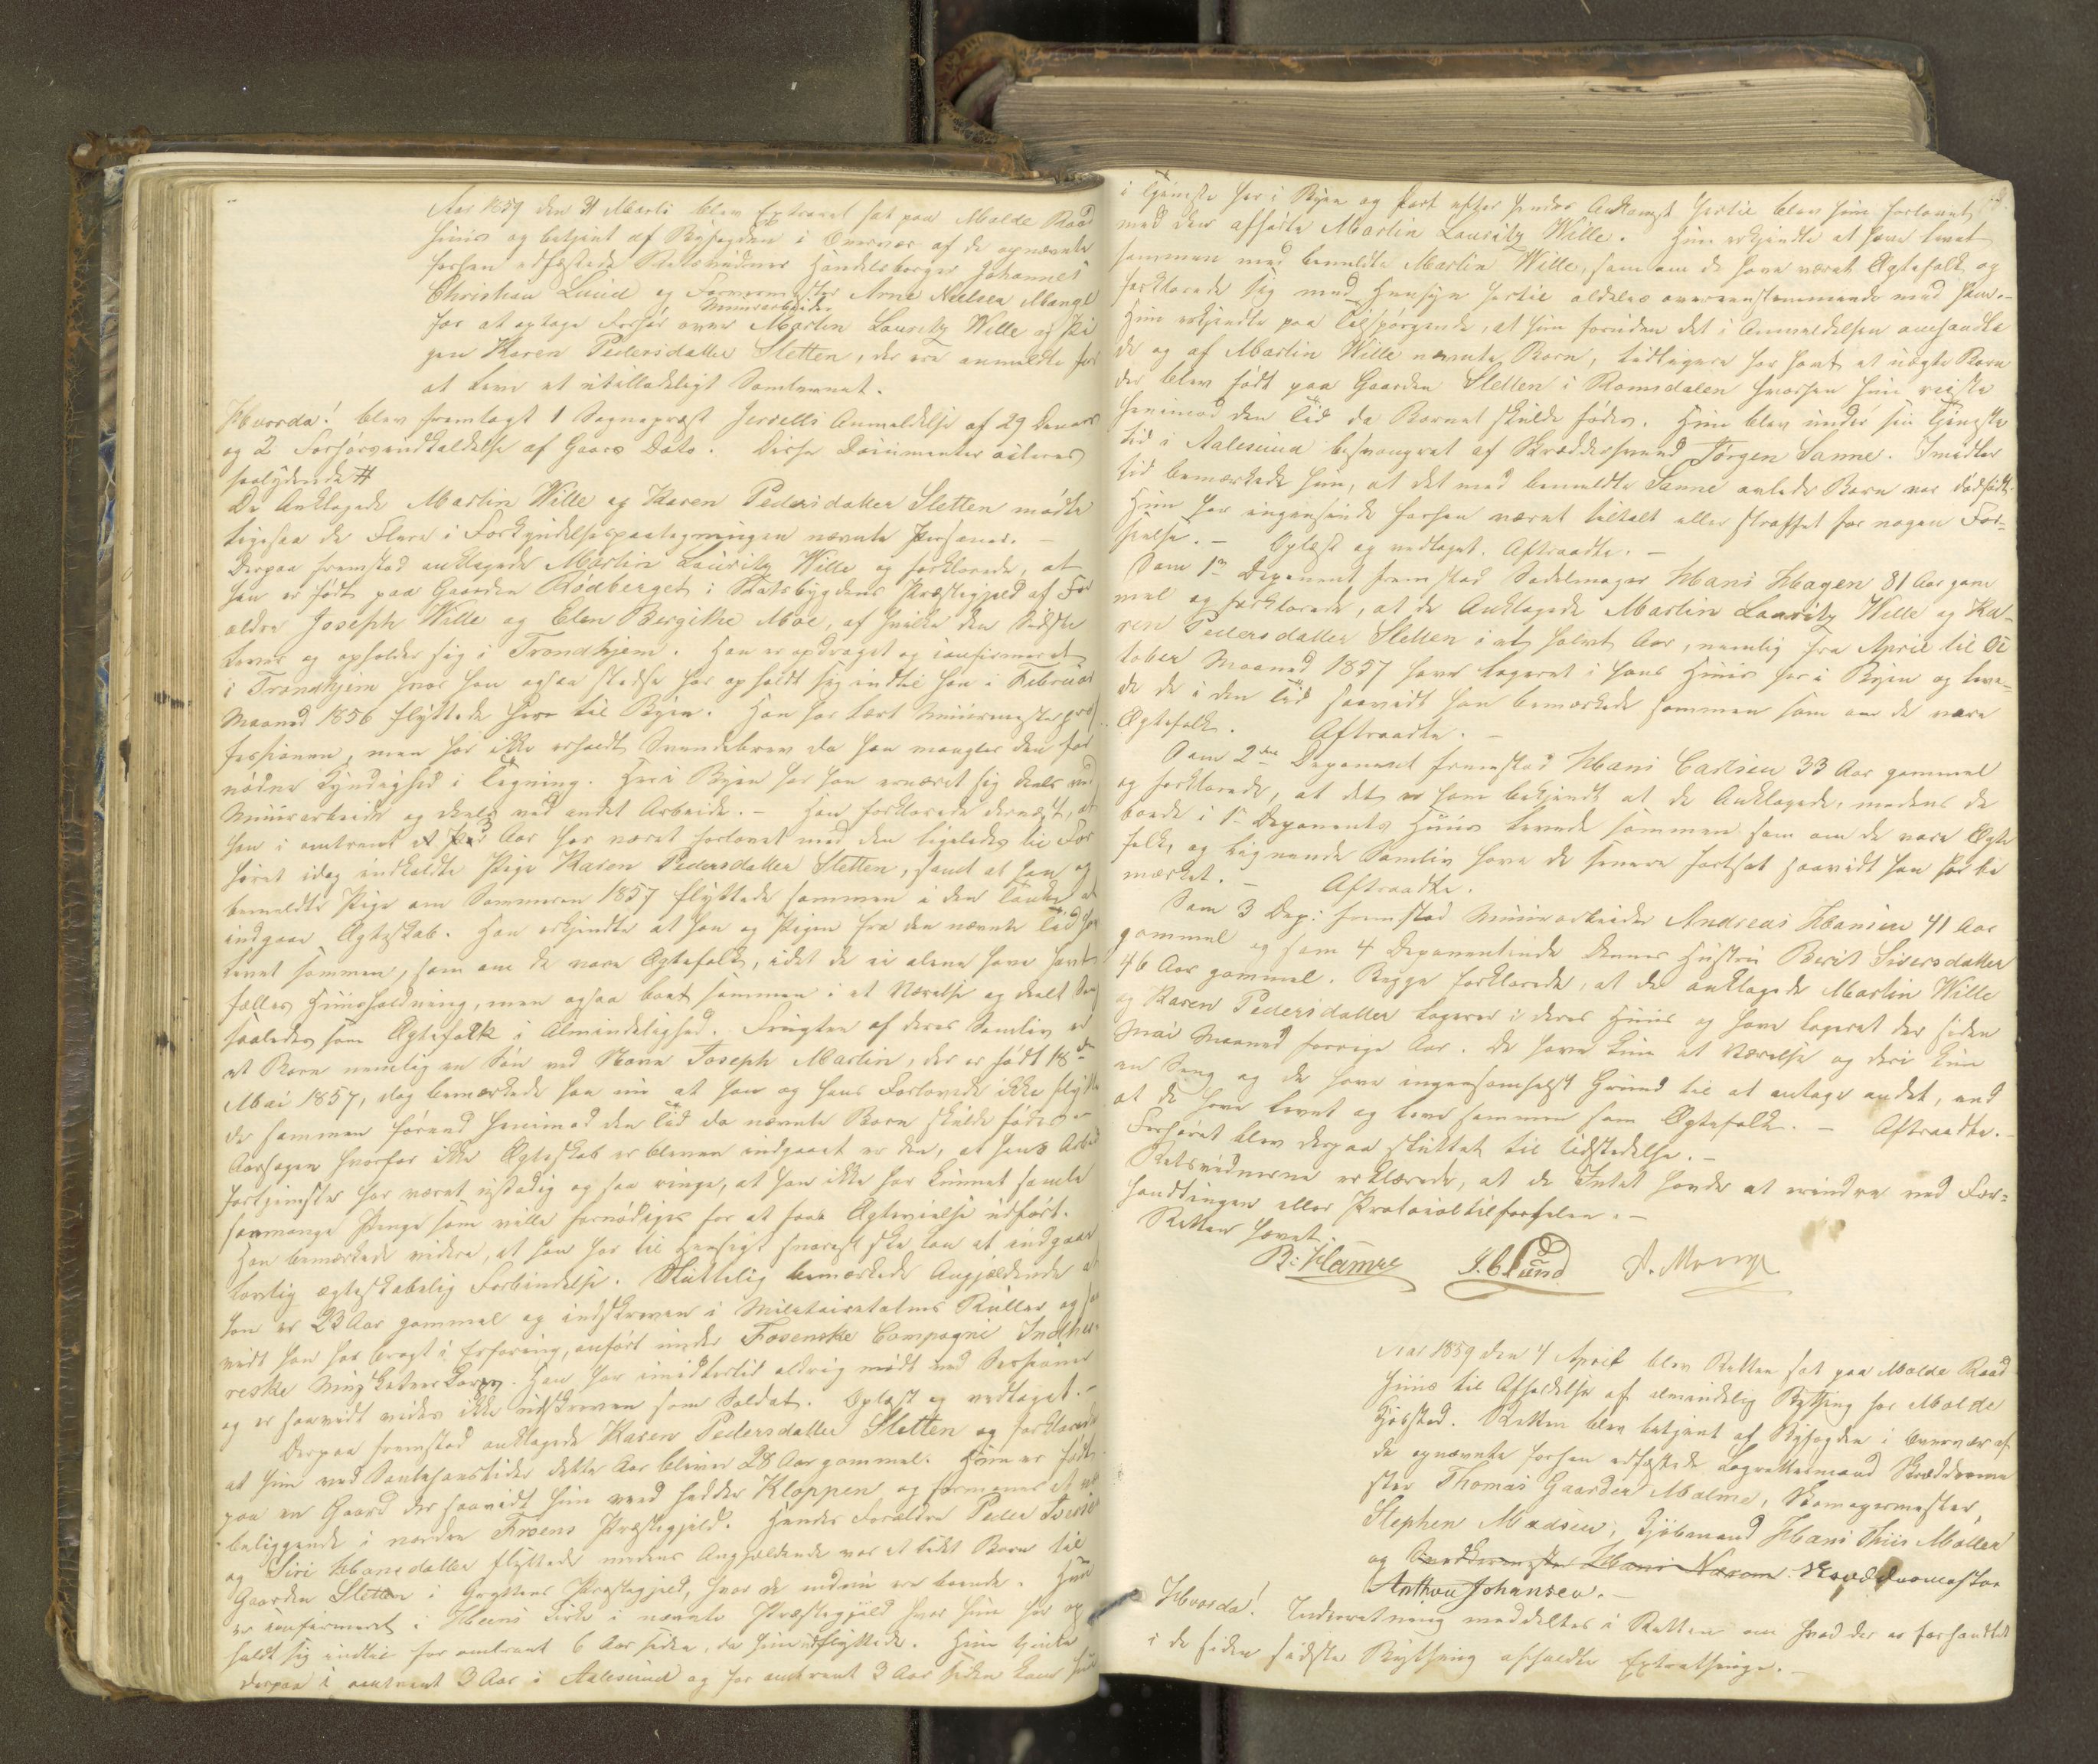 Aar 1859 den 31 Marts blev Extraret sat paa Molde Raad
huus og betjent af Byfogden i Overvær af de opnævnte
forhen edfæstede Retsvidner Handelsborger Johannes
Christian Lund og Farvermester Arne Nielsen Mange
for at optage Forhør over Muurarbeider Martin Lauritz Wille og Pi
gen Karen Pedersdatter Sletten, der ere anmeldte for
at leve et utilladeligt Samlevnet.
Hvorda! blev fremlagt 1 Sognepræst Jervells Anmeldelse af 29
og 2. Forhørsindkaldelse af Gaars Dato. Disse Documenter acteres
saalydende #
De Anklagede Martin Wille og Karen Pedersdatter Sletten mødte
ligesaa de Flere i Forkyndelsespaategningen nævnte Personer. –
Derpaa fremstod anklagede Martin Lauritz Wille og forklarede, at
han er født paa Gaarden Rødberget i Statsbygdens Præstegjeld af For
ældre Joseph Wille og Elen Bergithe Moe, af hvilke den Sidste
lever og opholder sig i Trondhjem. Han er opdraget og confirmeret
i Trondhjem hvor han ogsaa stedse har opholdt sig indtil han i Februar
Maaned 1856 flyttede her til Byen. Han har lært Muurmesterpro
fessionen, men har ikke erholdt Svendebrev da han mangler den for
nødne Kyndighed i Tegning. Her i Byen har han ernæret sig deels ved
Muurarbeide og deels ved andet Arbeide. – Han forklarede dernæst, at
han i omtrent 3 Aar har været forlovet med den ligeledes til For
høret idag indkaldte Pige Karen Pedersdatter Sletten, samt at han og
bemeldte Pige om Sommeren 1857 flyttede sammen i den Tanke at
indgaae Ægteskab. Han erkjendte at han og Pigen fra den nævnte Tid har
levet sammen, som om de vare Ægtefolk, idet de ei alene have havt
fælles Huusholdning, men ogsaa boet sammen i et Værelse og deelt Seng
saaledes som Ægtefolk i Almindelighed. Frugten af deres Samliv er
et Barn nemlig en Søn ved Navn Joseph Martin, der er født 18de
Mai 1857, dog bemærkede han nu at han og hans Forlovede ikke flytte
de sammen førend henimod den Tid da nævnte Barn skulde fødes –
Aarsagen hvorfor ikke Ægteskab er bleven indgaaet er den, at hans Arbeids
fortjeneste har været ustadig og saa ringe, at han ikke har kunnet samle
saamange Penge som ville fornødiges for at faae Ægtevielse udført.
Han bemærkede videre, at han har til Hensigt snarest skee kan at indgaae
lovlig ægteskabelig Forbindelse. Sluttelig bemærkede Angjældende at
han er 23 Aar gammel og indskreven i Militairetatens Ruller og saa
vidt han har bragt i Erfaring, anført under Fosenske Compagni Indher
reske Musketeerkorps. Han har imidlertid aldrig mødt ved Sessioner
og er saavidt vides ikke udskreven som Soldat. Oplæst og vedtaget. –
Derpaa fremstod anklagede Karen Pedersdatter Sletten og forklarede
at hun ved Sanktehanstider dette Aar bliver 28 Aar gammel. Hun er født
paa en Gaard der saavidt hun veed hedder Kloppen og formener at være
beliggende i nordre Froens Præstegjeld. Hendes Forældre Peder
og Siri Hansdatter flyttede medens Angjældende var et lidet Barn til
Gaarden Sletten i Gryttens Præstegjeld, hvor de endnu ere boende. Hun
er confirmeret i Heens Kirke i nævnte Præstegjeld hvor hun har op
holdt sig indtil for omtrent 6 Aar siden, da hun udflyttede. Hun tjente
derpaa i omtrent 3 Aar i Aalesund og for omtrent 3 Aar siden kom hun
i Tjeneste her i Byen og kort efter hendes Ankomst hertil blev hun forlovet
med den afhørte Martin Lauritz Wille. Hun erkjendte at have levet
sammen med bemeldte Martin Wille, som om de have været Ægtefolk og
forklarede sig med Hensyn hertil aldeles overeenstemmende med ham. –
Hun erkjendte paa Tilspørgende, at hun foruden det i Anmeldelsen omhandle
de og af Martin Wille nævnte Barn, tidligere har havt et uægte Barn
der blev født paa Gaarden Sletten i Romsdalen hvorhen hun reiste
henimod den Tid da Barnet skulde fødes. Hun blev under sin Tjeneste
tid i Aalesund besvangret af Skræddersvend Jørgen Sanne. Imidler
tid bemærkede hun, at det med bemeldte Sanne avlede Barn var dødfødt.
Hun har ingensinde forhen været tiltalt eller straffet for nogen For=
seelse. – Oplæst og vedtaget. Aftraadte. –
Som 1ste Deponent fremstod Sadelmager Hans Hagen 81 Aar gam
mel og forklarede, at de Anklagede Martin Lauritz Wille og Ka-
ren Pedersdatter Sletten i et halvt Aar, nemlig fra April til Oc
tober Maaned 1857 have logeret i hans Huus her i Byen og leve=
de de i den Tid saavidt han bemærkede sammen som om de vare
Ægtefolk. Aftraadte. –
Som 2den Deponent fremstod Hans Carlsen 33 Aar gammel
og forklarede, at det er ham bekjendt at de Anklagede, medens de
boede i 1ste Deponents Huus levede sammen som om de vare Ægte
folk, og lignende Samliv have de senere fortsat saavidt han har be
mærket. – Aftraadte.
Som 3 Dep: fremstod Muurarbeider Andreas Hansen 41 Aar
gammel og som 4 Deponentinde dennes Hustru Berit Siversdatter
46 Aar gammel. Begge forklarede, at de anklagede Martin Wille
og Karen Pedersdatter logerer i deres Huus og have logeret der siden
Mai Maaned forrige Aar. De have kun et Værelse og deri kun
en Seng og de have ingensomhelst Grund til at antage andet, end
at de have levet og leve sammen som Ægtefolk. – Aftraadte. –
Forhøret blev derpaa sluttet til Udstedelse. –
Retsvidnerne erklærede, at de Intet havde at erindre ved For=
handlingen eller Protocoltilførselen. –
Retten hævet.
B: Hamre J. C. Lund A. Mange
Aar 1859 den 4 April blev Retten sat paa Molde Raad
huus til Afholdelse af almindelig Bything for Molde
Kjøbsted. Retten blev betjent af Byfogden i Overvær af
de opnævnte forhen edfæstede Laugrettesmænd Skrædderme
ster Thomas Gaarder Malme, Skomagermester
Stephen Madsen, Kjøbmand Hans Thiis Møller
og Snedkermester Hans Næsom Skræddermester
Anthon Johansen. –
Hvorda! Underretning meddeltes i Retten om hvad der er forhandlet
i de siden sidste Bything afholdte Extrathinge. –